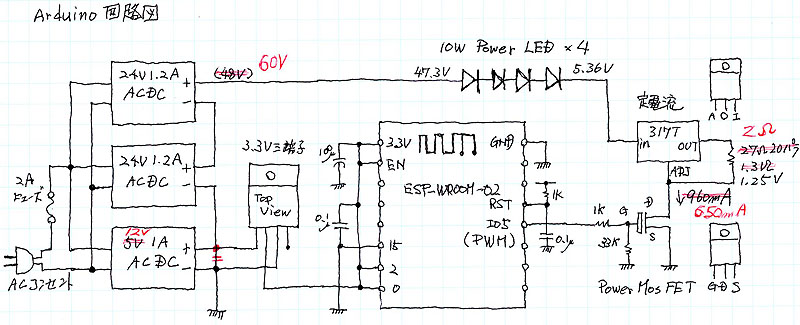 Arduino 回路図
10W Power LED ×4
24V1.2A
ACDC
+
-
(48V) 60V
47.3V
5.36V
定電流
317T
in
OUT
ADJ
A O I
2Ω
1.3Ω
1.25V
960mA
650mA
24V1.2A
ACDC
+
-
2A
ヒューズ
12V
5V 1A
ACDC
+
-
ACコンセント
3.3V三端子
O
Top
View
10μ
0.1μ
3.3V
EN
GND
ESP-WROOM-02
RST
IO5
(PWM)
15
2
0
1K
0.1μ
1K
33K
G
D
S
Power Mos FET
G D S